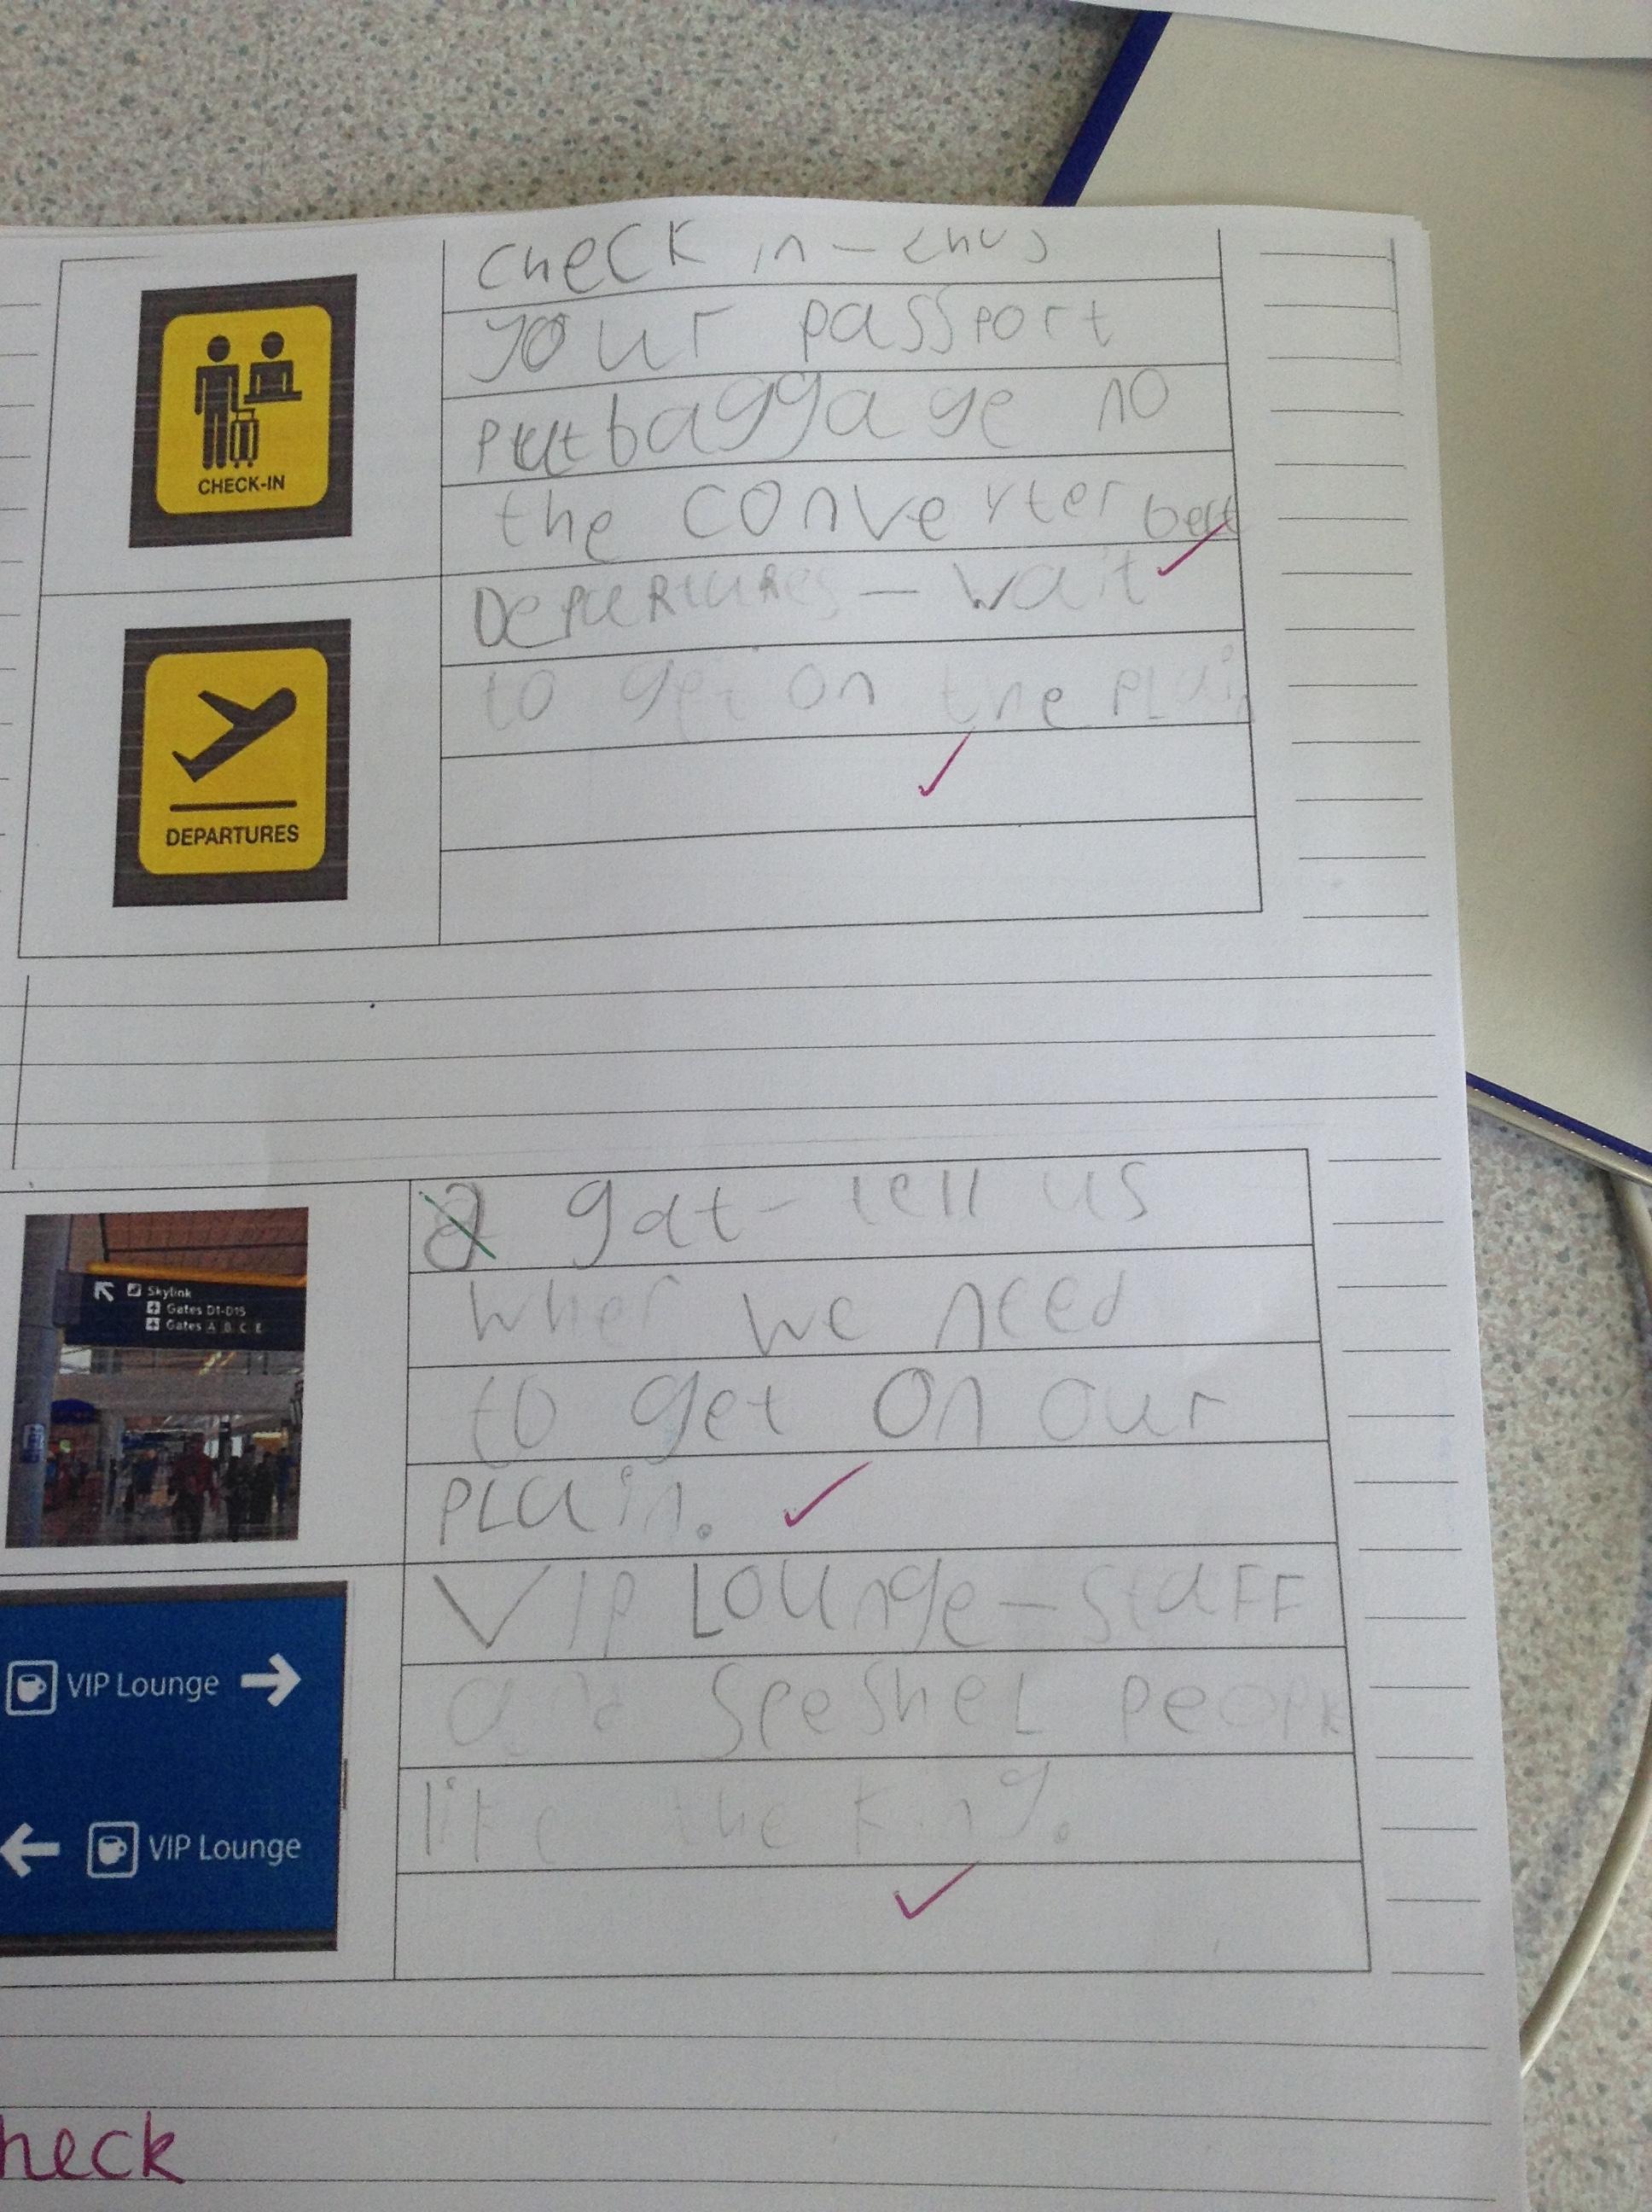 CHECK-IN
check in -
your passport
put baggage no
the converter belt
DEPARTURES
Departures - wait
to get on the plain
Skylink
Gates D1-D15
Gates A B C E
gat - tell us
wher we need
to get on our
plain.
VIP Lounge
VIP Lounge
VIP Lounge - staff
and speshel people
like the king.
heck